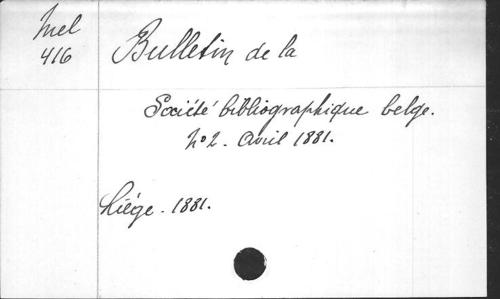 Mel
416
Bulletin de la
Société bibliographique belge.
No 2. Avril 1881.
Liége. 1881.